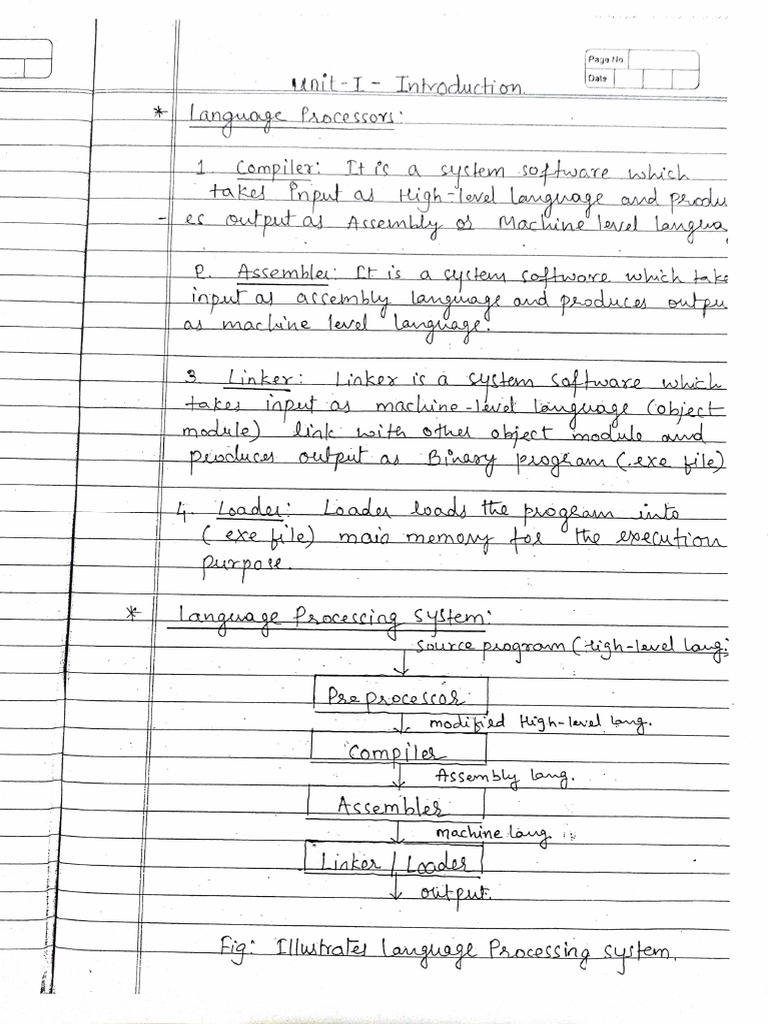 Page No
Date
Unit-I - Introduction
* Language Processors:
1. Compiler: It is a system software which
takes Input as High-level language and produ
es output as Assembly or Machine level langua
2. Assembler: It is a system software which take
input as assembly language and produces outpu
as machine level language.
3. Linker: Linker is a system software which
takes input as machine-level language (object
module) link with other object module and
produces output as Binary program (.exe file)
4. Loader: Loader loads the program into
(exe file) main memory for the execution
purpose.
* Language Processing System:
Source program (High-level lang:
Preprocessor
modified High-level lang.
Compiler
Assembly lang.
Assembler
machine lang
Linker / Loader
output.
Fig: Illustrates Language Processing system.